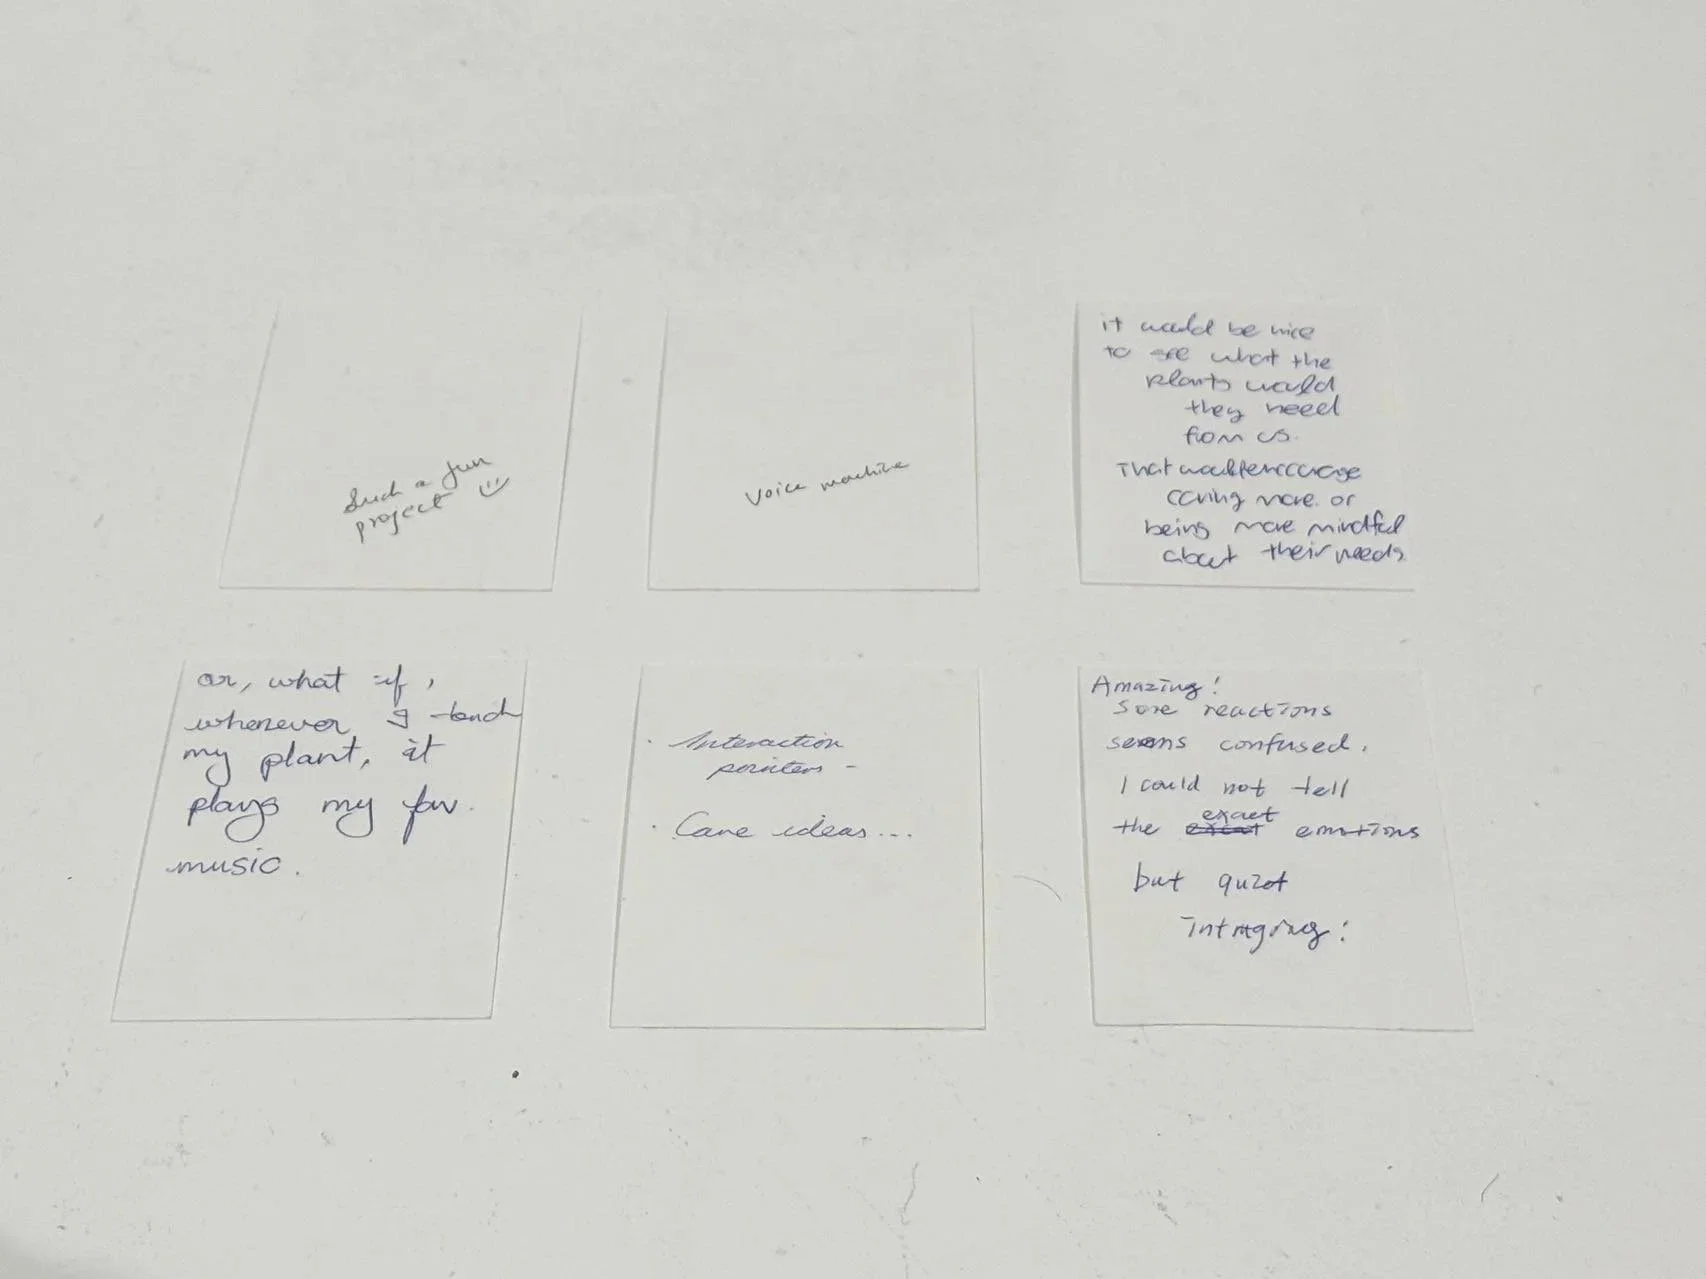 Such a fun
project
voice machine
it would be nice
to see what the
plants would
they need
from us.
That would encourage
caring more. or
being more mindful
about their needs.
or, what if,
whenever I touch
my plant, it
plays my fav.
music.
· Interaction
pointers -
· Care ideas...
Amazing!
Some reactions
seems confused.
I could not tell
exact
the emotions
but quiet
intriging!